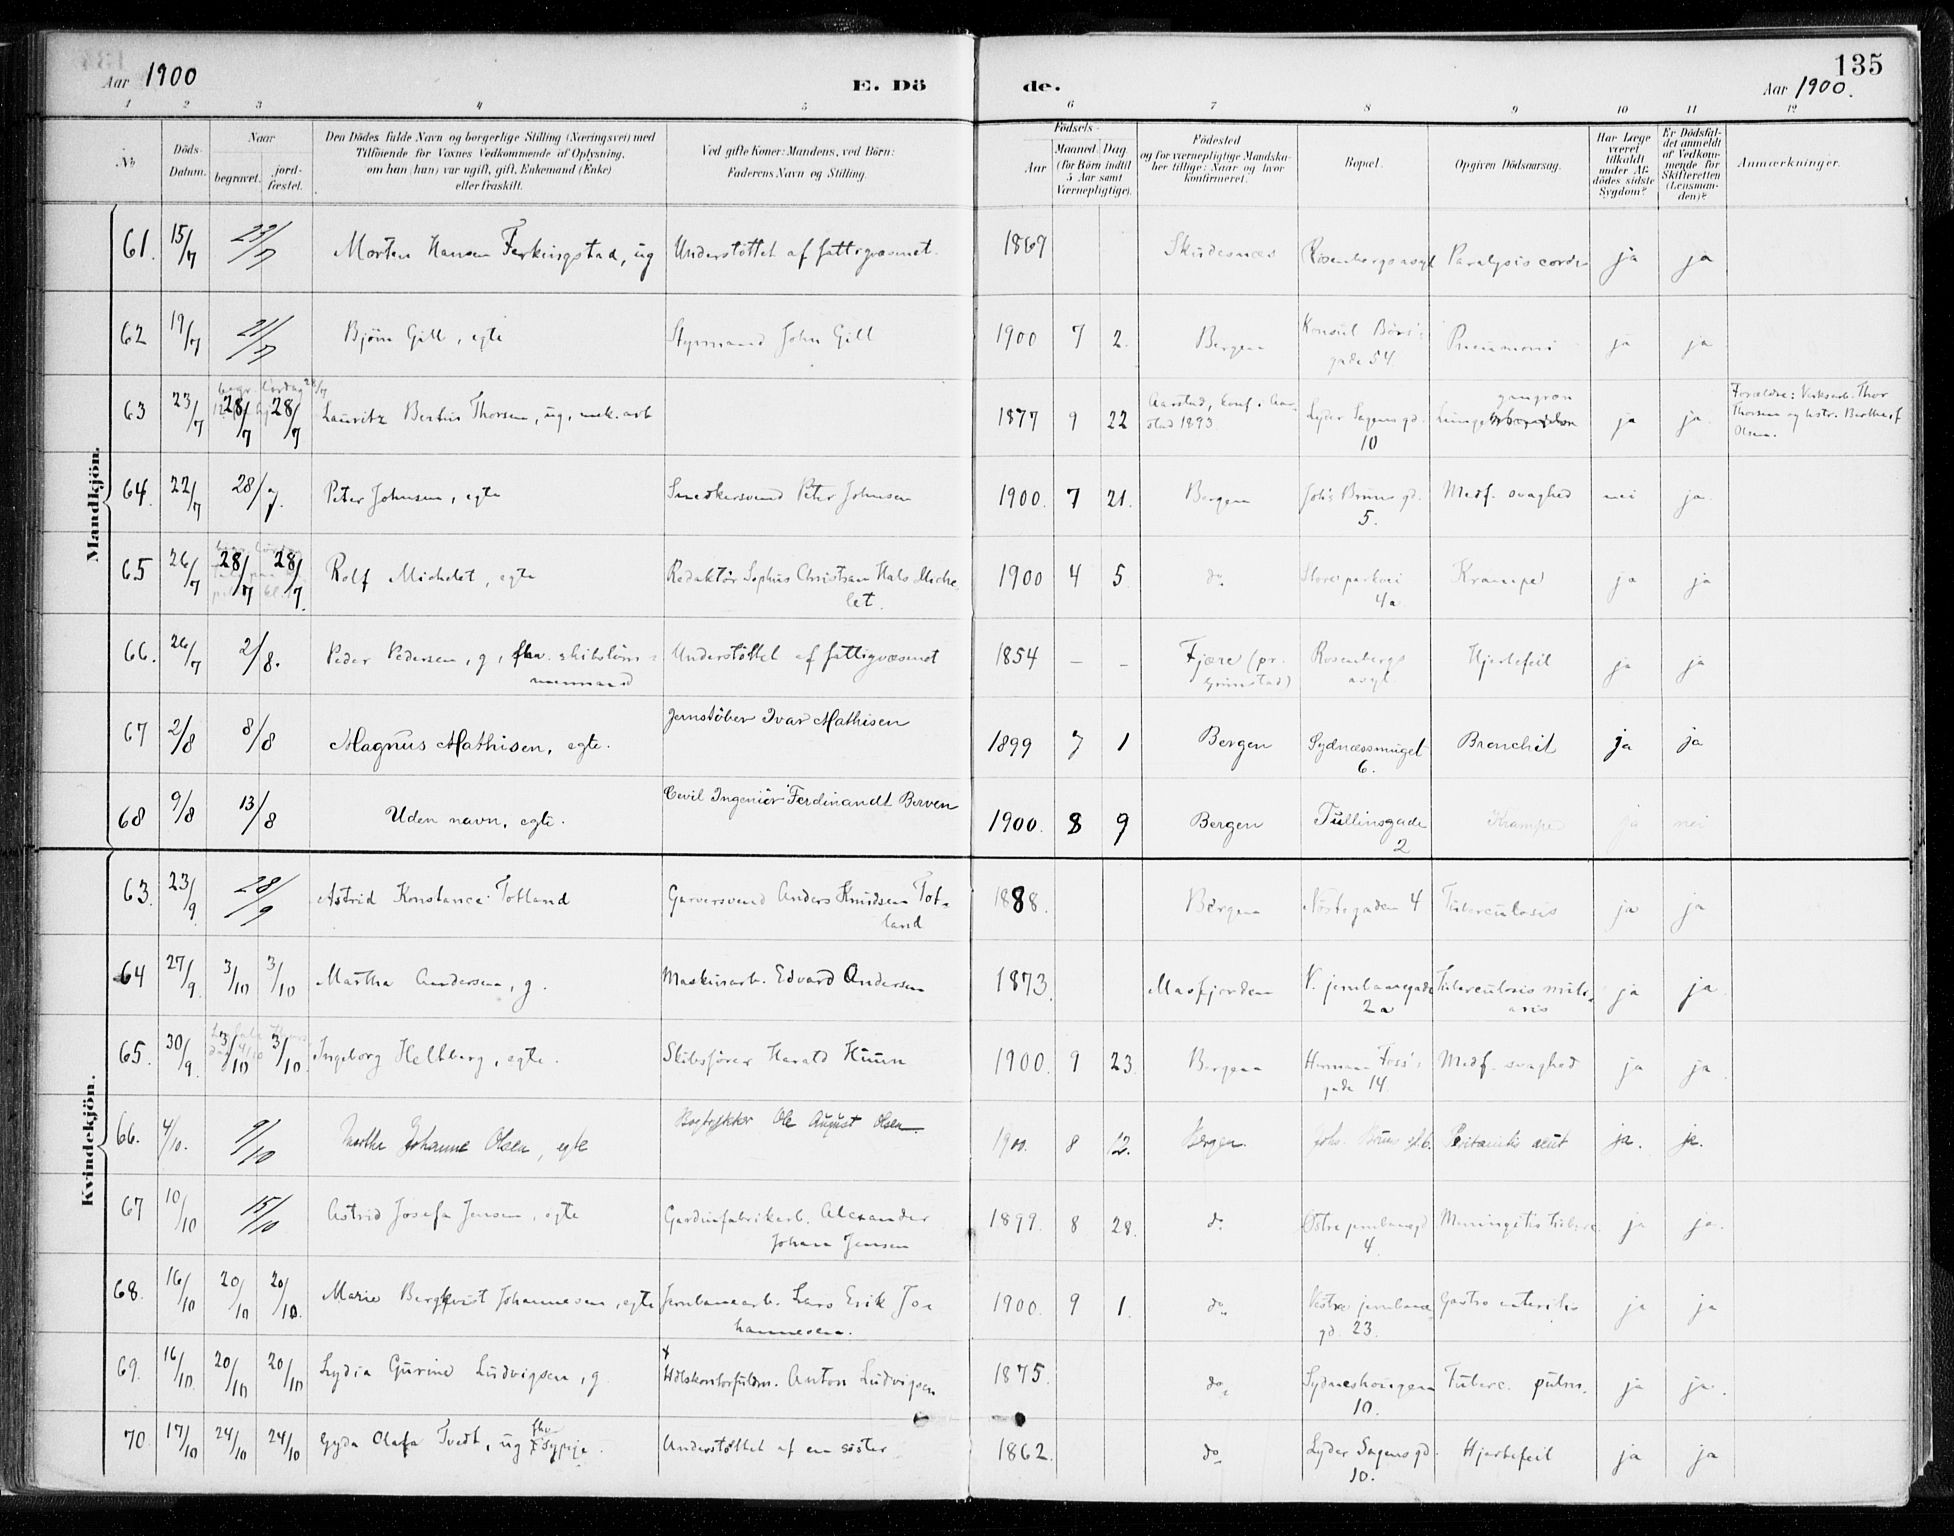 135
Aar 1900
E. Dö
de.
Aar 1900.
1 2 3 4 5 6 7 8 9 10 11 12
No
Döds-Datum.
Naar
begravet.
jordfæstet.
Den Dödes fulde Navn og borgerlige Stilling (Næringsvei) med
Tilföiende for Voxnes Vedkommende af Oplysning,
om han (hun) var ugift, gift, Enkemand (Enke)
eller fraskilt.
Ved gifte Koner: Mandens, ved Börn:
Faderens Navn og Stilling.
Födsels-
Aar
Maaned Dag
(for Börn indtil
5 Aar samt
Værnepligtige).
Födested
og for værnepligtige Mandskaber tillige: Naar og hvor
konfirmeret.
Bopæl.
Opgiven Dödsaarsag.
Har Læge
været
tilkaldt
under Afdödes sidste
Sygdom?
Er Dödsfaldet anmeldt
af Vedkommende for
Skifteretten
(Lensmanden)?
Anmærkninger.
Mandkjön.
61. 15/7 23/7 Morten Hansen Ferkingstad, ug Understöttet af fattigvæsenet. 1869 Skudesnæs Rosenbergs asyl Paralysis cordis ja ja
62 19/7 21/7 Bjôrn Gill, egte Styrmand John Gill 1900 7 2. Bergen Konsul Börs's gade 54 Pneumoni ja ja
63 23/7 28/7 28/7 Lauritz Bertin Thorsen, ug, mek. arb 1877 9 22 Aarstad, konf. i Aarstad 1893 Lyder Sagens gd. 10 Lunge gangræn ja ja. Forældre: Verksarb. Thor
Thorsen og hstr. Berthe, f
Olsen.
64 22/7 28/7. Peter Johnsen, egte Snedkersvend Peter Johnsen 1900. 7 21. Bergen Joh's Bruns gd. 5. Medf. svaghed nei ja.
65 26/7 28/7 28/7. Rolf Michelet, egte Redaktör Sophus Christian Hals Michelet. 1900 4 5 do. Store parkvei 4a Krampe ja ja
66. 26/7 2/8. Peder Pedersen, g, fhv. skibstömmermand Understöttet af fattigvæsenet 1854 – – Fjære (pr. Grimstad) Rosenbergs asyl Hjertefeil ja ja
67 2/8 8/8 Magnus Mathisen, egte. Jernstöber Ivar Mathisen 1899 7 1 Bergen Sydnæssmuget 6. Bronchit ja ja
68 9/8 13/8 Uden navn, egte. Civil Ingeniör Ferdinandt Berven 1900. 8 9 Bergen Tullinsgade 2 Krampe ja nei
Kvindekjön.
63. 23/9 28/9 Astrid Konstance Totland Garversvend Anders Knudsen Totland 1888. Bergen Nöstegaden 4 Tuberculosis ja ja
64 27/9. 3/10 3/10 Martha Andersen, g. Maskinarb. Edvard Andersen 1873. Masfjorden V. jernbanegade 2a Tuberculosis miliaris ja ja
65. 30/9. 3/10 3/10. Ingeborg Hellberg, egte. Skibsförer Harald Huun 1900. 9 23. Bergen Herman Foss's gade 14. Medf. svaghed ja ja.
66. 4/10. 9/10 Marthe Johanne Olsen, egte Bogtrykker Ole August Olsen 1900. 8 12. Bergen. Johs. Bruns gd 6. Peritonitis acut ja. ja.
67 10/10 15/10 Astrid Josefa Jensen, egte Gardinfabrikarb. Alexander Johan Jensen 1899. 8 28. do. Östre jernbanegd 4. Meningitis tuberc. ja ja.
68. 16/10 20/10 20/10. Marie Bergkvist Johannesen, egte Jernbanearb. Lars Erik Johannesen. 1900. 9 1. do. Vestre jernbane gd. 23. Gastro enteritis ja ja
69. 16/10. 20/10 20/10 Lydia Gurine Ludvigsen, g. Hdlskontorfuldm. Anton Ludvigsen 1875. do. Sydneshougen 10. Tuberc. pulm. ja ja.
70. 17/10 24/10 24/10 Gyda Olafa Tvedt, ug fhv sypige. Understöttet af en söster 1862. do Lyder Sagens gd. 10. Hjertefeil ja ja